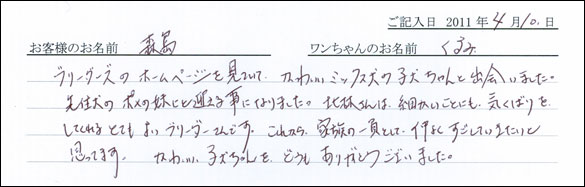 ご記入日 2011年4月10日
お客様のお名前 森島 ワンちゃんのお名前 くるみ
ブリーダーズのホームページを見ていて、かわいいミックス犬の子犬ちゃんと出会いました。
先住犬のポメの妹にと迎える事になりました。北林さんは、細かいことにも、気くばりを
してくれるとてもよいブリーダーさんです。これから、家族の一員として、仲よくすごしていきたいと
思ってます。 かわいい子犬ちゃんを、どうもありがとうございました。